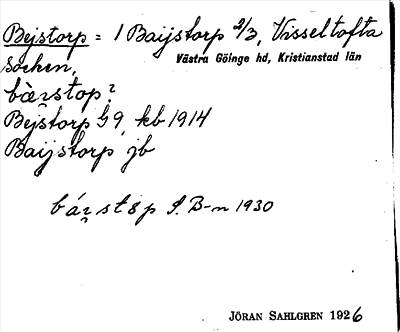 Bejstorp = 1 Baijstorp 2/3, Visseltofta
socken, Västra Göinge hd, Kristianstad län
bæ̀ʂstop?
Bejstorp S 9, kb 1914
Baijstorp jb
S. B-n 1930
JÖRAN SAHLGREN 1926